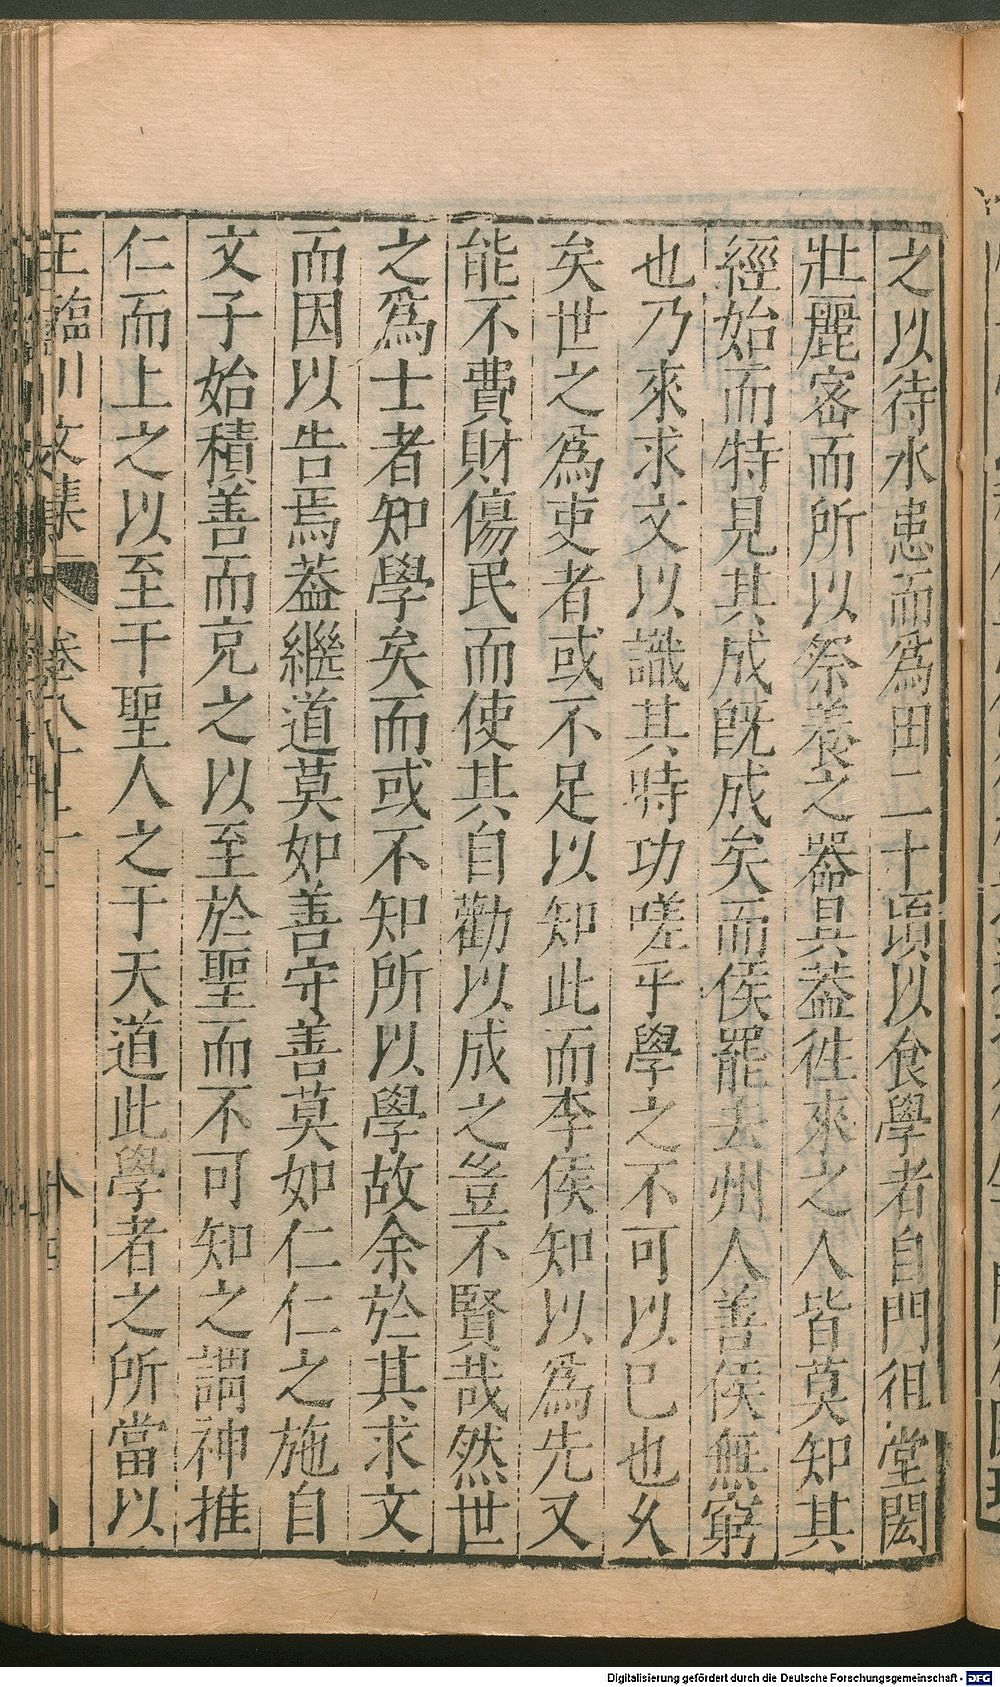 之以待水患而爲田二十頃以食學者自門徂堂閎
壯麗密而所以祭養之器具葢徃來之人皆莫知其
經始而特見其成旣成矣而侯罷去州人善侯無窮
也乃來求文以識其時功嗟乎學之不可以已也久
矣世之爲吏者或不足以知此而李侯知以爲先又
能不費財傷民而使其自勸以成之豈不賢哉然世
之爲士者知學矣而或不知所以學故余於其求文
而因以告焉葢繼道莫如善守善莫如仁仁之施自
父子始積善而充之以至於聖而不可知之謂神推
仁而上之以至于聖人之于天道此學者之所當以
王臨川文集
卷八十二
Digitalisierung gefördert durch die Deutsche Forschungsgemeinschaft - DFG